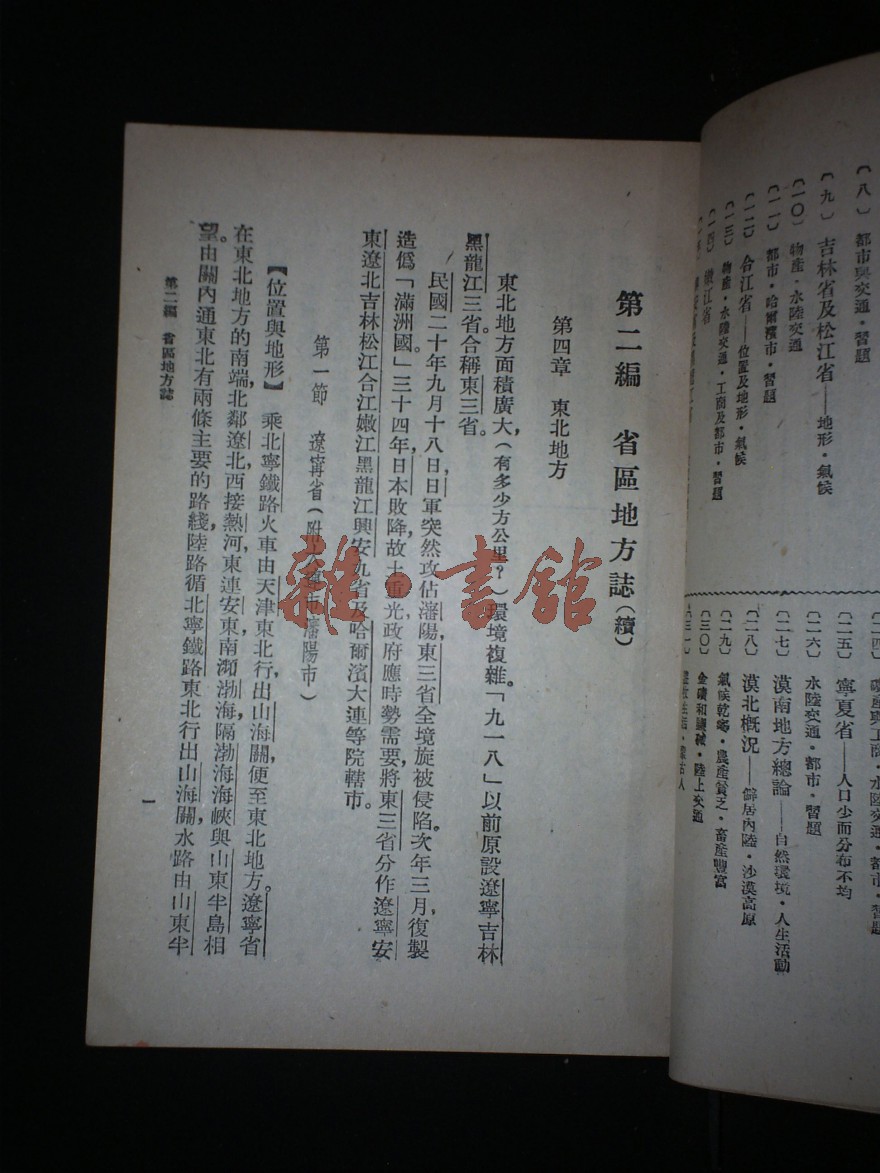 〔八〕都市與交通・習題
〔九〕吉林省及松江省——地形・氣候
〔一〇〕物產・水陸交通
〔一一〕都市・哈爾濱市・習題
〔一二〕合江省——位置及地形・氣候
〔一三〕物產・水陸交通・工商及都市・習題
〔一四〕嫩江省
水陸交通・都市・習題
〔二五〕寧夏省——人口少而分布不均
〔二六〕水陸交通・都市・習題
〔二七〕漠南地方總論——自然環境・人生活動
〔二八〕漠北概況——僻居內陸・沙漠高原
〔二九〕氣候乾燥・農產貧乏・畜產豐富
〔三〇〕金礦和鹽碱・陸上交通
第二編 省區地方誌(續)
第四章 東北地方
東北地方面積廣大,(有多少方公里?)環境複雜。「九一八」以前原設遼寧吉林
黑龍江三省。合稱東三省。
民國二十年九月十八日,日軍突然攻佔瀋陽,東三省全境旋被侵陷。次年三月,復製
造爲「滿洲國。」三十四年,日本敗降,故土重光,政府應時勢需要,將東三省分作遼寧安
東遼北吉林松江合江嫩江黑龍江興安九省及哈爾濱大連等院轄市。
第一節 遼寧省(附大連市瀋陽市)
【位置與地形】 乘北寧鐵路火車由天津東北行,出山海關,便至東北地方。遼寧省
在東北地方的南端,北鄰遼北,西接熱河,東連安東,南瀕渤海,隔渤海海峽與山東半島相
望。由關內通東北有兩條主要的路綫,陸路循北寧鐵路東北行出山海關,水路由山東半
第二編 省區地方誌
一
雜・書館